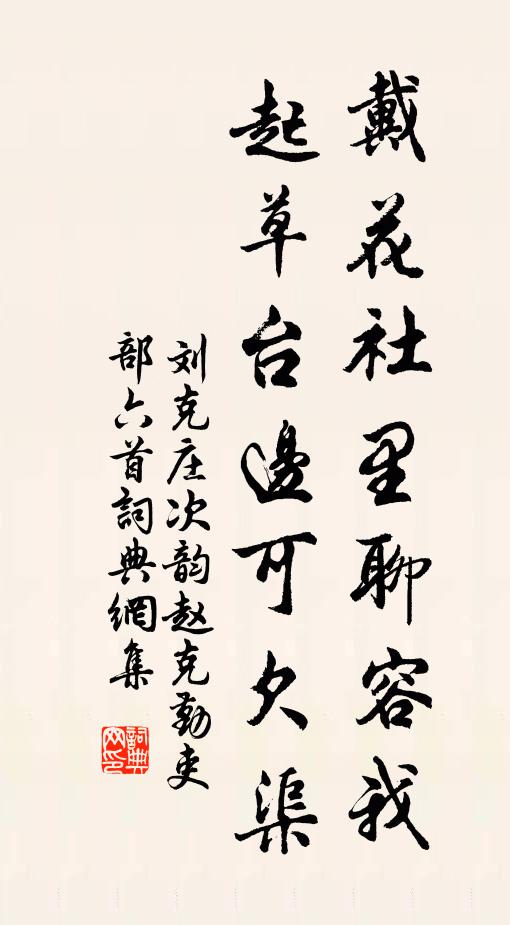 戴花社里聊容我
起草台邊可欠渠
刘克庄次韵赵克勤吏
部六首詞典網集
詞典網印